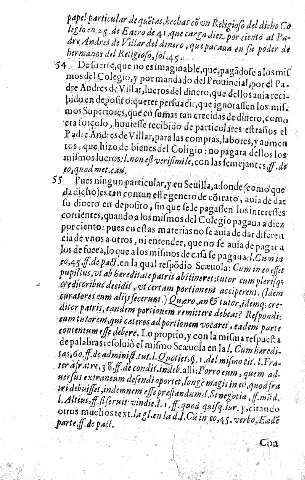 papel particular de quētas, hechas cō vn Religioso del dicho Co
legio en 25. de Enero de 41 que carga diez por ciento al Pa-
dre Andres de Villar del dinero, que paraua en su poder de
hermanos del Religioso, fol. 45.
54 De suerte, que no es imaginable, que, pagādose a los mis
mos del Colegio, y por mandado del Prouincial, por el Pa
dre Andres de Villar, lucros del dinero, que dellos auia reci
bido en deposito: querer persuadir, que ignorassen los mis-
mos Superiores, que en sumas tan crecidas de dinero, como
era forçoso, houiesse recibido de particulares estraños el
Padre Andres de Villar, para las compras, labores, y aumen
tos, que hizo de bienes del Colegio: no pagara dellos los
mismos lucros: l. non est verisimile, con las semejantes, ff. de
eo, quod met. cau.
55 Pues ningun particular, y en Seuilla, adonde (como queda
dicho) es tan comun este genero de cōtrato, auia de dar
su dinero en deposito, sin que se le pagassen los interesses
corrientes, quando a los mismos del Colegio pagaua a diez
por ciento: pues en estas materias no se auia de dar diferen
cia de vnos a otros, ni entender, que no se auia de pagar a
los de fuera, lo que a los mismos de casa se pagaua: l. Cum in
eo, 45. ff. de pact. en la qual respōdio Scæuola: Cum in eo esset
pupillus, vt ab hereditate patris abstineret: tutor cum plerisq;
creditoribus decidit, vt certam portionem acciperent. (Idem
curatores cum alijs fecerunt.) Quæro, an & tutor, idemq; cre-
ditor patris, eandem portionem remittere debeat? Respondi:
eum tutorem, qui cæteros ad portionem vocaret, eadem parte
contentum esse debere. Lo proprio, y con la misma respuesta
de palabras resoluiò el mismo Scæuola en la l. Cum heredi-
tas, 60. ff. de administ. tut. l. Quoties, §. 1. del mismo tit. l. Fra-
ter à fratre, 38. ff. de condit. indeb. alli: Porro eum, quem ad-
uersus extraneum defendi oportet, longè magis in eo, quod fra
tri debuisset, indemnem esse præstandum. l. Si negotia, ff. mād.
l. Altius, ff. si seruit. vindic. l. 1. ff. quod quisq; iur. y, citando
otros muchos text. la gl. en la d. l. Cū in eo, 45. verbo, Eadē
parte. ff. de pact.
Con